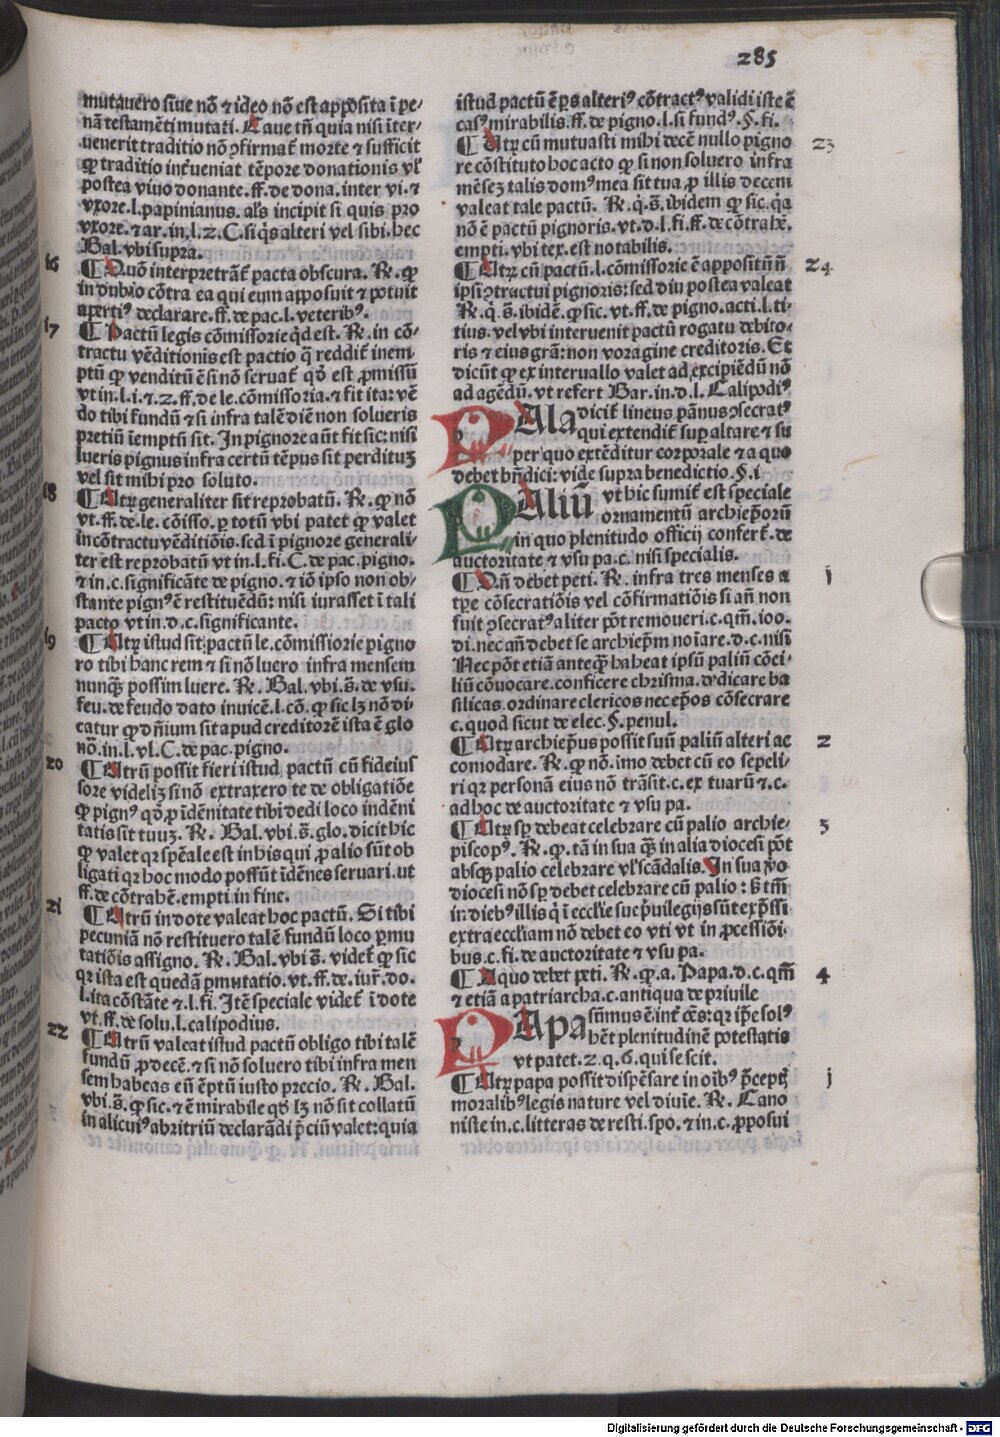 285
mutauero siue nō ⁊ ideo nō est apposita ī pe/
nā testamēti mutati. Caue tñ quia nisi īter/
uenerit traditio nō ꝯfirmat᷑ morte ⁊ sufficit
ꝙ traditio int᷑ueniat tēpore donationis vl᷑
postea viuo donante. ff. de dona. inter vi. ⁊
vxore. l. papinianus. al̓s incipit si quis pro
vxore. ⁊ ar. in. l. 2. C. si q̇s alteri vel sibi. hec
Bal. vbi supra.
16
¶ Quō interpretrāt᷑ pacta obscura. R̃. ꝙ
in dubio cōtra ea qui eum apposuit ⁊ potuit
apertiꝰ declarare. ff. de pac. l. veteribꝰ.
17
¶ Pactū legis cōmissorie qḋ est. R̃. in cō/
tractu vēditionis est pactio q̄ reddit᷑ inem/
ptū ꝙ venditū ē si nō seruat᷑ qḋ est ꝓmissū
vt in. l. i. ⁊. 2. ff. de le. cōmissoria. ⁊ fit ita: vē
do tibi fundū ⁊ si infra talē diē non solueris
pretiū īemptū sit. In pignore aūt fit sic: nisi
lueris pignus infra certū tēpus sit perdituꝫ
vel sit mibi pro soluto.
18
¶ Utꝝ generaliter sit reprobatū. R̃. ꝙ nō
vt. ff. de. le. cōisso. ꝑ totū vbi patet ꝙ valet
in cōtractu vēditiōis. sed ī pignore generali/
ter est reprobatū vt in. l. fi. C. de pac. pigno.
⁊ in. c. significāte de pigno. ⁊ iō ipso non ob/
stante pignꝰ ē restituēdū: nisi iurasset ī tali
pacto vt in. d. c. significante.
19
¶ Utꝝ istud sit pactū le. cōmissiorie pigno
ro tibi hanc rem ⁊ si nō luero infra mensem
nunq̄ꝫ possim luere. R̃. Bal. vbi. s̄. de vsu.
feu. de feudo dato inuicē. l. cō. ꝙ sic lꝫ nō di
catur ꝙ dñium sit apud creditorē ista ē glo
nō. in. l. vl. C. de pac. pigno.
20
¶ Utrū possit fieri istud pactū cū fideius
sore videlꝫ si nō extraxero te de obligatiōe
ꝙ pignꝰ qḋ ꝓ idēnitate tibi dedi loco indēni
tatis sit tuuꝫ. R̃. Bal. vbi. s̄. glo. dicit hic
ꝙ valet qꝛ spēale est in his qui ꝓ alio sūt ob
ligati qꝛ hoc modo possūt īdēnes seruari. ut
ff. de cōtrahē. empti. in fine.
21
¶ Utrū in dote valeat hoc pactū. Si tibi
pecuniā nō restituero talē fundū loco ꝑmu
tatiōis assigno. R̃. Bal. vbi s̄. videt᷑ ꝙ sic
qꝛ ista est quedā ꝑmutatio. vt. ff. de. iur̄. do.
l. ita cōstāte ⁊. l. fi. Itē speciale videt᷑ ī dote
vt. ff. de solu. l. calipodius.
22
¶ Utrū valeat istud pactū obligo tibi talē
fundū ꝓ decē. ⁊ si nō soluero tibi infra men
sem habeas eū ēptū iusto precio. R̃. Bal.
vbi. s̄. ꝙ sic. ⁊ ē mirabile qḋ lꝫ nō sit collatū
in alicuiꝰ abritriū declarādi p̄ciū valet: quia
istud pactū ē ꝑs alteriꝰ cōtractꝰ validi iste ē
casꝰ mirabilis. ff. de pigno. l. si fundꝰ. §. fi.
23
¶ Utꝝ cū mutuasti mihi decē nullo pigno
re cōstituto hoc acto ꝙ si non soluero infra
mēseꝫ talis domꝰ mea sit tua ꝓ illis decem
valeat tale pactū. R̃. q. s̄. ibidem ꝙ sic. qa
nō ē pactū pignoris. vt. d. l. fi. ff. de cōtrahē.
empti. vbi tex. est notabilis.
24
¶ Utꝝ cū pactū. l. cōmissorie ē appositū ñ
ipsi ꝯtractui pignoris: sed diu postea valeat
R̃. q. s̄. ibidē. ꝙ sic. vt. ff. de pigno. acti. l. ti/
tius. vel vbi interuenit pactū rogatu debito/
ris ⁊ eius gr̄a: non voragine creditoris. Et
dicūt ꝙ ex interuallo valet ad excipiēdū nō
ad agēdū. vt refert Bar. in. d. l. Calipodiꝰ
PAla dicit᷑ lineus pānus ꝯsecratꝰ
qui extendit᷑ sup altare ⁊ su
per quo extēditur corporale ⁊ a quo
debet bñdici: vide supra benedictio. §. i
PAliū vt hic sumit᷑ est speciale
ornamentū archiep̄orū
in quo plenitudo officij confert᷑. de
auctoritate ⁊ vsu pa. c. nisi specialis.
1
¶ Qñ debet peti. R̃. infra tres menses a
tꝑe cōsecratiōis vel cōfirmatiōis si añ non
fuit ꝯsecratꝰ aliter pōt remoueri. c. qm̄. ioo.
di. nec añ debet se archiep̄m noīare. d. c. nisi
Nec pōt etiā anteq̄ꝫ habeat ipsū paliū cōci/
liū cōuocare. conficere chrisma. dedicare ba
silicas. ordinare clericos nec ep̄os cōsecrare
c. quod sicut de elec. §. penul.
2
¶ Utꝝ archiep̄us possit suū paliū alteri ac
comodare. R̃. ꝙ nō. imo debet cū eo sepeli/
ri qꝛ personā eius nō trāsit. c. ex tuarū ⁊. c.
ad hoc de auctoritate ⁊ vsu pa.
3
¶ Utꝝ sꝑ debeat celebrare cū palio archie/
piscopꝰ. R̃. ꝙ. tā in sua q̄ꝫ in alia diocesi pōt
absqꝫ palio celebrare vl᷑ scādalis. In sua ꝟo
diocesi nō sꝑ debet celebrare cū palio: s̄ tm̄
in diebꝰ illis q̇ ī eccl̄ie sue p̄uilegijs sūt exp̄ssi
extra eccl̄iam nō debet eo vti vt in ꝓcessiōi/
bus. c. fi. de auctoritate ⁊ vsu pa.
4
¶ A quo debet peti. R̃. ꝙ. a. Papa. d. c. qm̄
⁊ etiā a patriarcha. c. antiqua de priuile
PApa sūmus ē int᷑ oēs: qꝛ ip̄e solꝰ
hēt plenitudinē potestatis
vt patet. 2. q. 6. qui se scit.
1
¶ Utꝝ papa possit dispēsare in oībꝰ p̄ceptꝭ
moralibꝰ legis nature vel diuīe. R̃. Cano
niste in. c. litteras de resti. spo. ⁊ in. c. ꝓposui
Digitalisierung gefördert durch die Deutsche Forschungsgemeinschaft - DFG